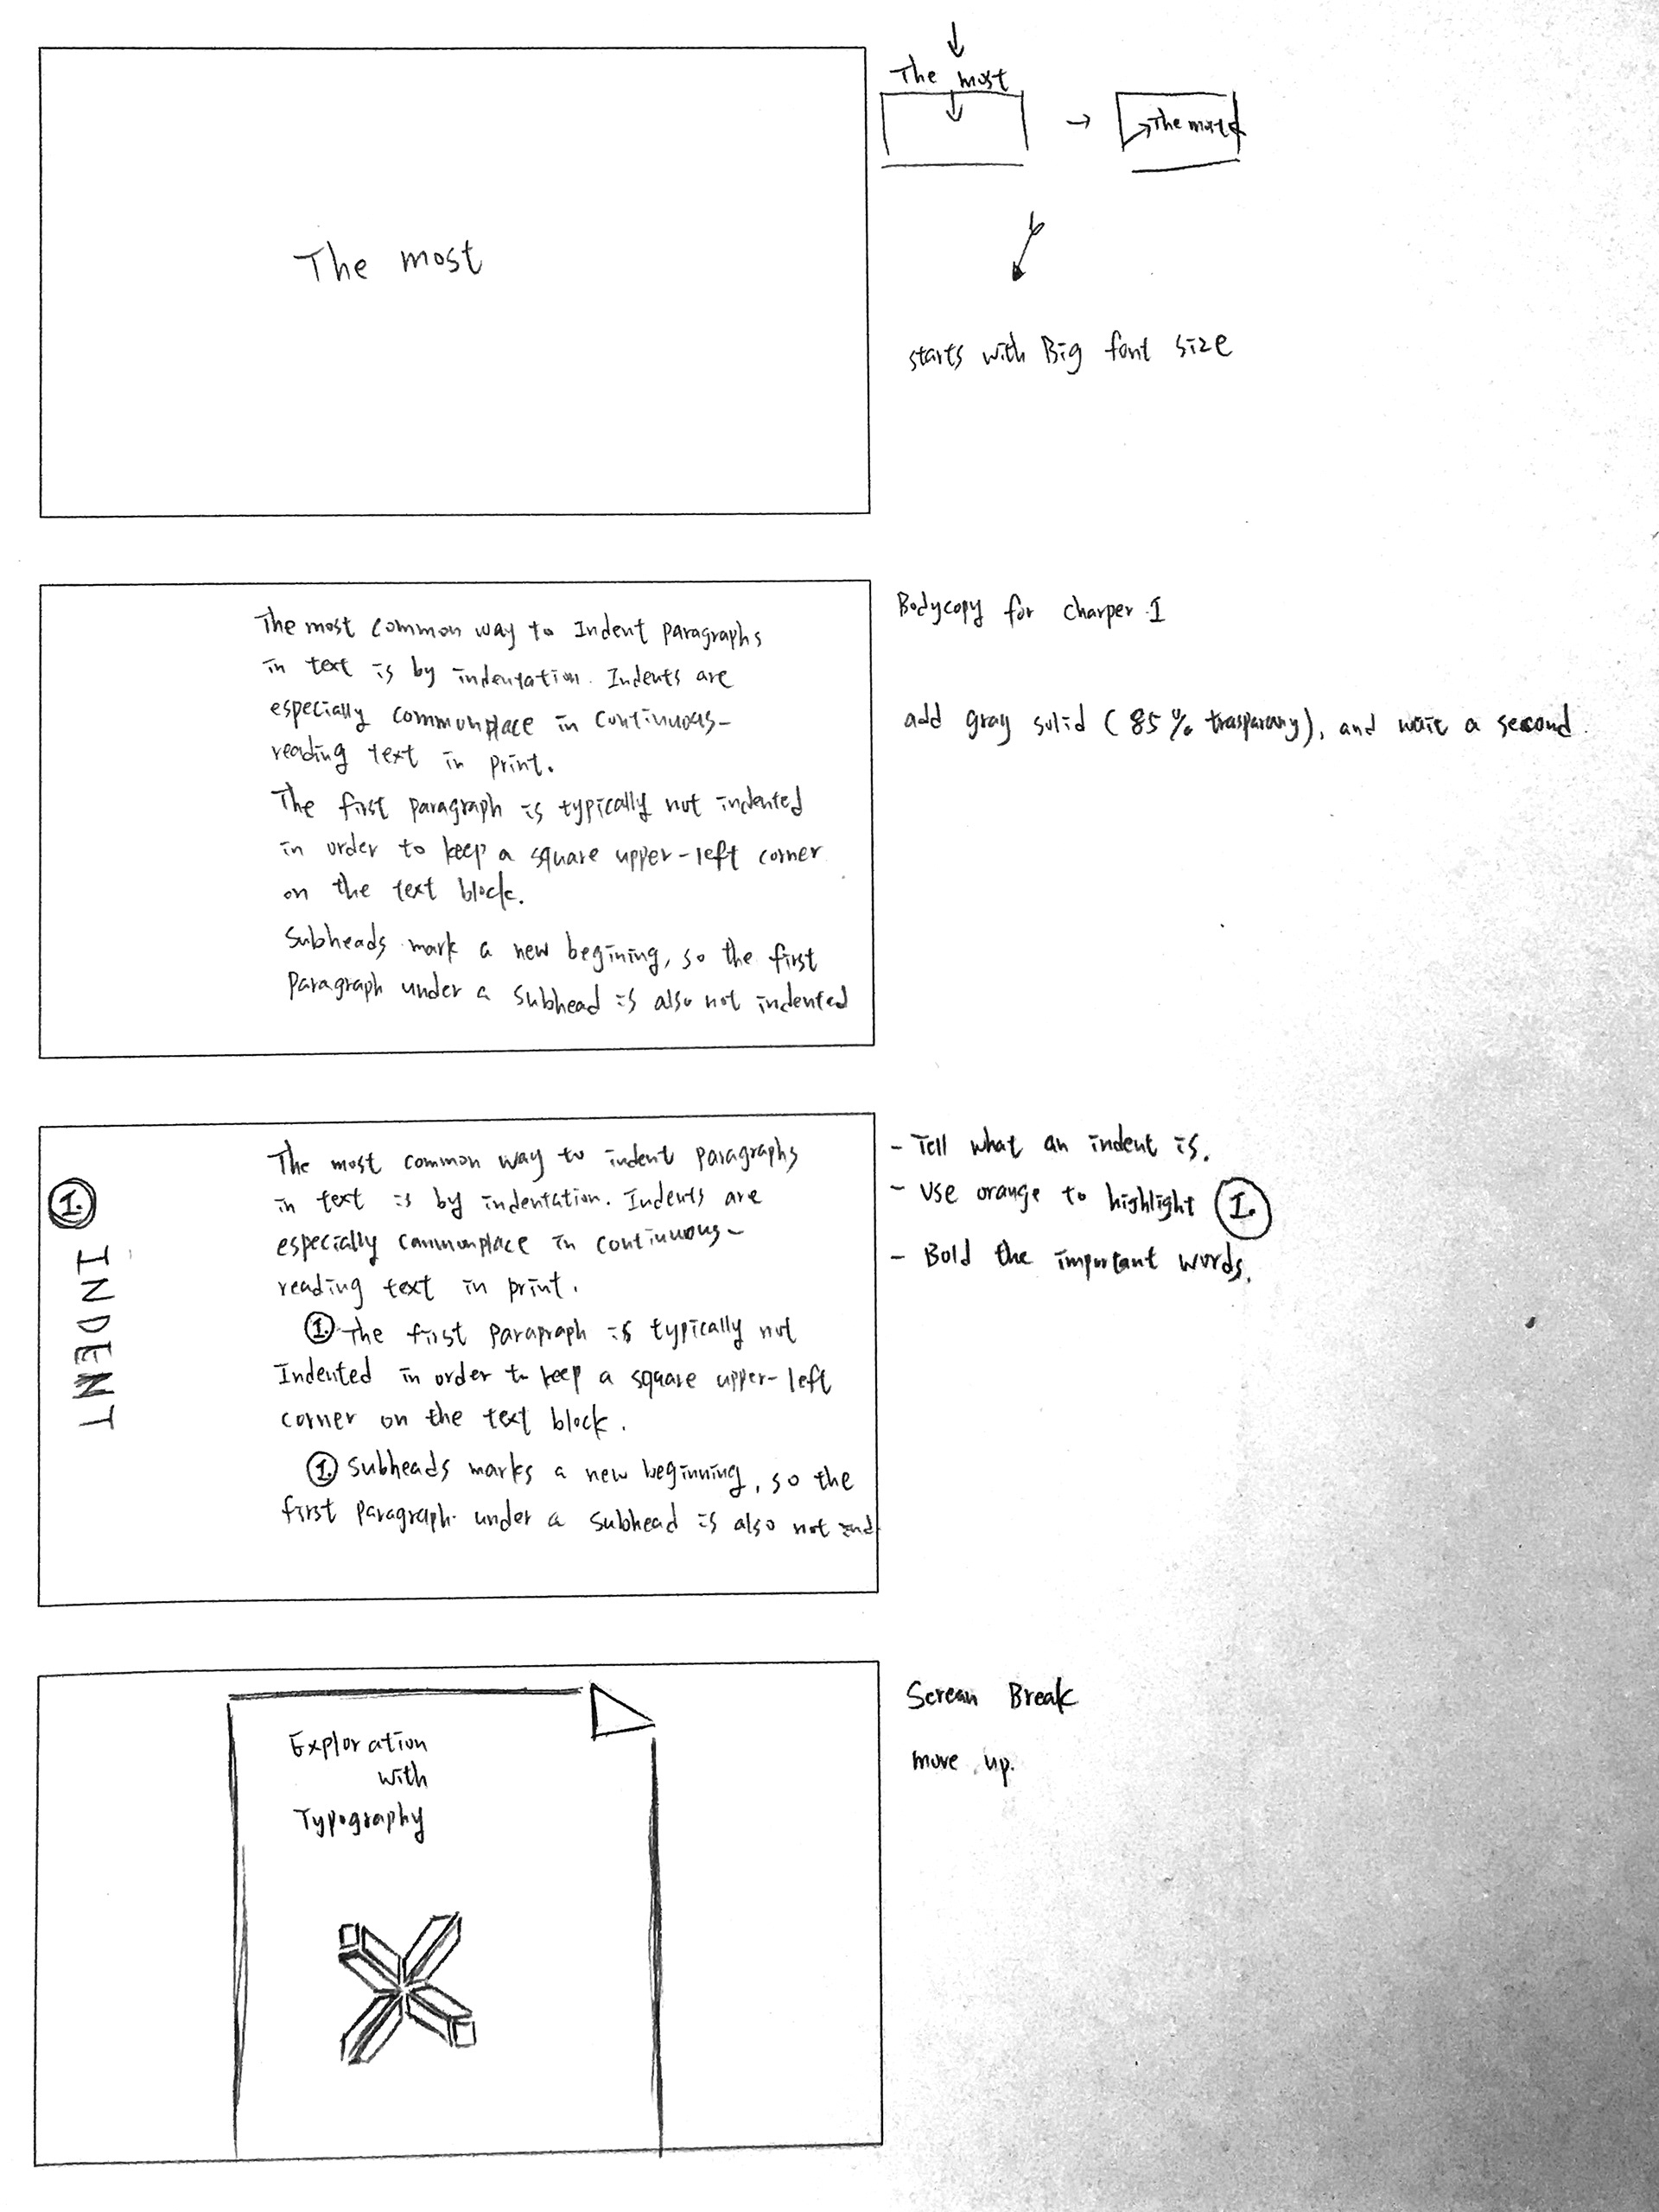 The most
The most
The most
starts with Big font size
The most common way to Indent paragraphs
in text is by indentation. Indents are
especially commonplace in continuous-
reading text in print.
The first paragraph is typically not indented
in order to keep a square upper-left corner
on the text block.
Subheads mark a new begining, so the first
Paragraph under a subhead is also not indented
Bodycopy for charper I
add gray solid (85% trasparany), and wait a second.
I.
INDENT
The most common way to indent paragraphs
in text is by indentation. Indents are
especially commonplace in continuous-
reading text in print.
I. The first parapraph is typically not
Indented in order to keep a square upper-left
corner on the text block.
I. Subheads marks a new beginning, so the
first paragraph under a subhead is also not ind
- Tell what an indent is.
- Use orange to highlight I.
- Bold the important words.
Exploration
with
Typography
Screan Break
move up.